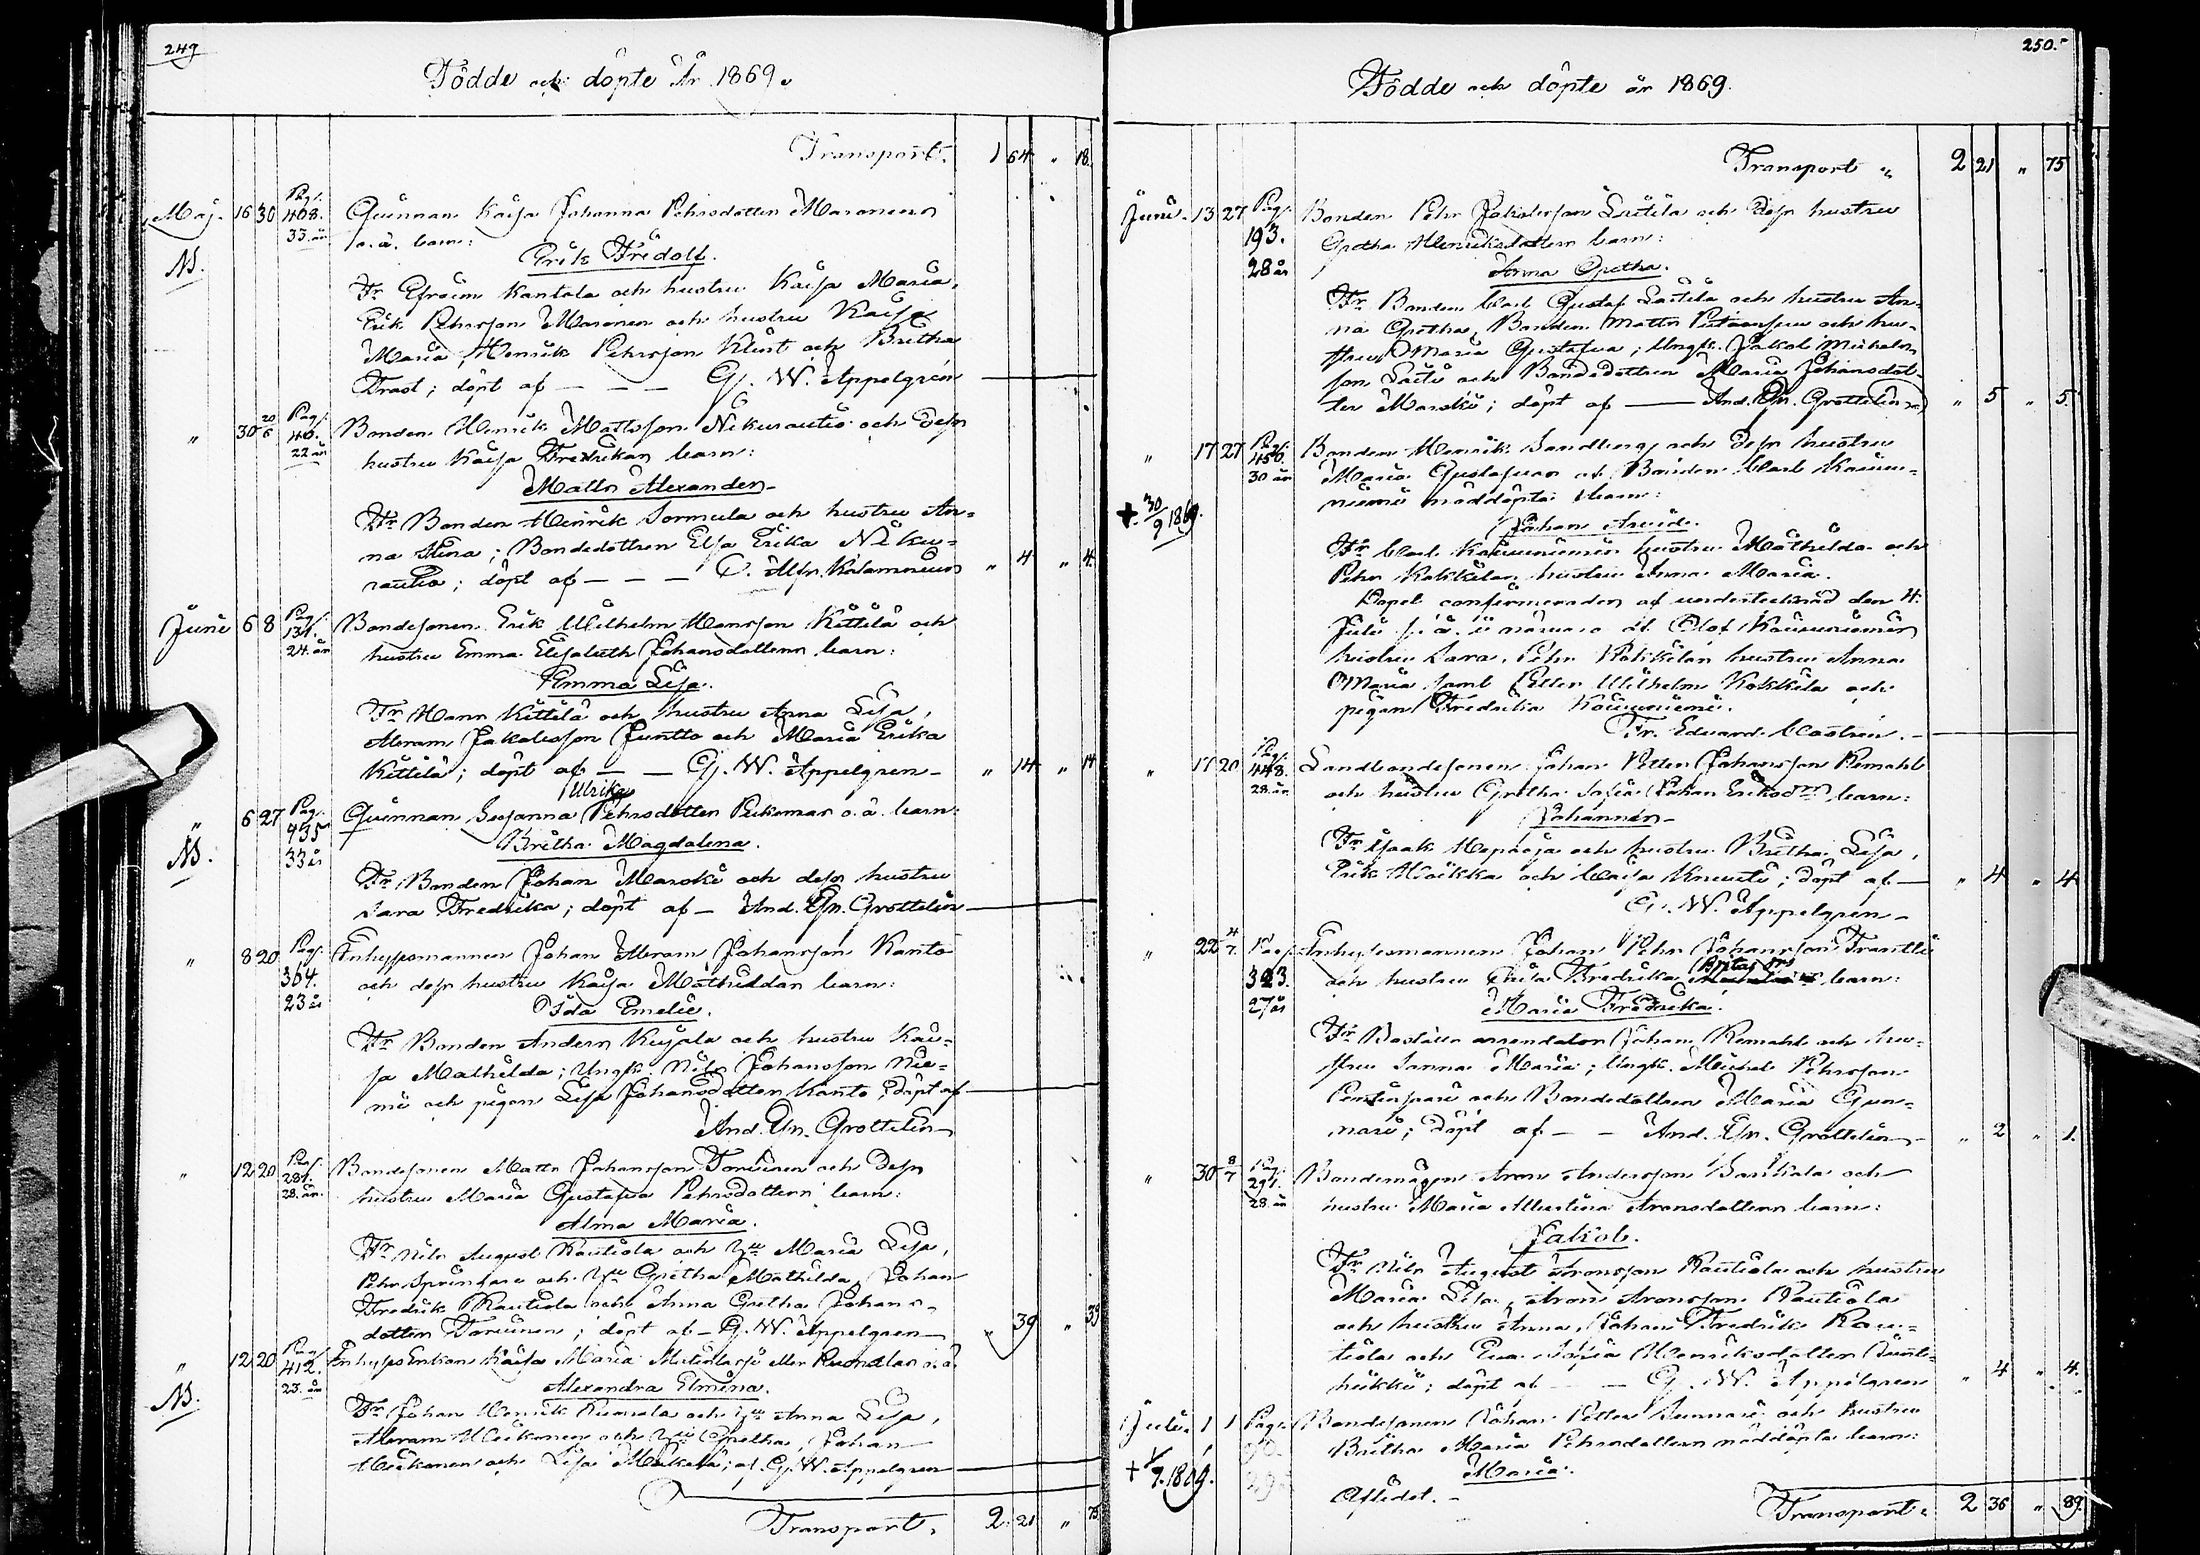 249
Födde och döpte År 1869.
Transport. 1 64 " 18.
Maj. 16 30 Pag. 408. 33 år Qvinnan Kaisa Johanna Pehrsdotter Maronens
o.ä. barn:
N. Erik Fridolf.
Fr. Efraim Kantola och hustru Kaisa Maria,
Erik Pehrsson Maronen och hustru Kaisa
Maria, Henrik Pehrsson Klint och Britha
Trast; döpt af — — — G. W. Appelgren
" 30 20/6 Pag. 40. 22 år Bonden Henrik Mattsson Nikurautio och dess
hustru Kaisa Fredrikas barn:
Matts Alexander
Fr. Bonden Henrik Sormula och hustru An-
na Stina; Bondedottren Elsa Erika Niku-
rautio; döpt af — — — " 4 " 4.
Juni 6 8 Pag. 131. 24 år Bondesonen Erik Wilhelm Hansson Kittilä och
hustru Emma Elisabeth Johansdotters barn:
Emma Lisa.
Fr. Hans Kittilä och hustru Anna Lisa,
Abram Jakobsson Juntto och Maria Erika
Kittilä; döpt af — — G. W. Appelgren — " 14 " 14
Ulrika
" 6 27 Pag. 435 33 år Qvinnan Susanna Pehrsdotter Peikomas o.ä. barn:
N. Britha Magdalena.
Fr. Bonden Johan Marski och dess hustru
Sara Fredrika; döpt af — And. Gr. Grottelin
" 8 20 Pag. 364. 23 år Inhysesmannen Johan Abram Johansson Kanto
och dess hustru Kaisa Mathildas barn:
Ida Emelie.
Fr. Bonden Anders Kujala och hustru Kai-
sa Mathilda; Ungk. Nils Johansson Nie-
mi och pigan Lisa Johansdotter Kanto; döpt af
And. Gr. Grottelin
" 12 20 Pag. 281. 28 år Bondesonen Matts Johansson Torvinen och dess
hustru Maria Gustafva Pehrsdotters barn:
Alma Maria.
Fr. Nils August Rautiola och h:u Maria Lisa,
Pehr Springare och h:u Gretha Mathilda, Johan
Fredrik Rautiola och Anna Gretha Johans-
dotter Torvinen; döpt af — G. W. Appelgren — " 39 " 39
" 12 20 Pag. 412. 23 år Inhyses Enkan Kaisa Maria eller Rumalas o.ä.
N. Alexandra Elmina.
Fr. Johan Henrik Rumala och h:u Anna Lisa,
Abram Moikonen och h:u Gretha, Johan
Moikonen och Lisa; af G. W. Appelgren
Transport. 2. 21 " 75
250.
Födde och döpte år 1869.
Transport " 2 21 " 75
Juni. 13 27 Pag. 193. 28 år Bonden Pehr Jakobsson Laitila och dess hustru
Gretha Henriksdotters barn:
Anna Gretha.
Fr. Bonden Carl Gustaf Laitila och hustru An-
na Gretha, Bonden Matts och hu-
stru Maria Gustafva; Ungk. Jakob Mickels-
son Laiti och Bondedottren Maria Johansdot-
ter Marski; döpt af — And. Gr. Grottelin " 5 " 5.
" 17 27 Pag. 456. 30 år Bonden Henrik Sandberg och dess hustru
Maria Gustafvas af Bonden Carl Kauni-
niemi nöddöpta barn:
+ 30/9 1869. Johan Arvid.
Fr. Carl Kauniniemis hustru Mathilda och
Pehr Kokkilas hustru Anna Maria.
Dopet confirmerades af undertecknad den 4.
Juli s.å. i närvaro af Olof Kauniniemis
hustru Sara, Pehr Kokkilas hustru Anna
Maria samt Petter Wilhelm Kokkila och
pigan Fredrika Kauniniemi.
Fr. Eduard Castrén.
" 17 20 Pag. 448. 28 år Landbondesonen Johan Petter Johansson Remahl
och hustru Gretha Sofia Johan Eriksd:rs barn:
Johannes
Fr. Isaak och hustru Britha Lisa,
Erik och Caisa Knuuti; döpt af — " 4 " 4
G. W. Appelgren
" 22 4/7 Pag. 323. 27 år Inhysesmannen Johan Pehr Johansson Franttis
och hustru Fredrika barn:
Maria Fredrika.
Fr. arrendator Johan Remahl och hu-
stru Sanna Maria; Ungk. Michel Pehrsson
och Bondedottren Maria Gun-
nari; döpt af — — And. Gr. Grottelin " 2 " 1.
" 30 8/7 Pag. 291. 28 år Bondemågen Aron Andersson och
hustru Maria Albertina Aronsdotters barn:
Jakob.
Fr. Nils August Aronsson Rautiola och hustru
Maria Lisa, Aron Aronsson Rautiola
och hustru Anna, Johan Fredrik Rau-
tiola och Eva Sofia Henriksdotter
döpt af — — G. W. Appelgren " 4 " 4.
Juli. 1 1 Pag. Bondesonen Johan Petter Sunnari och hustru
Britha Maria Pehrsdotters nöddöpta barn:
+ 1/7. 1869. Maria.
Aflidet. —
Transport. 2 36 " 89.